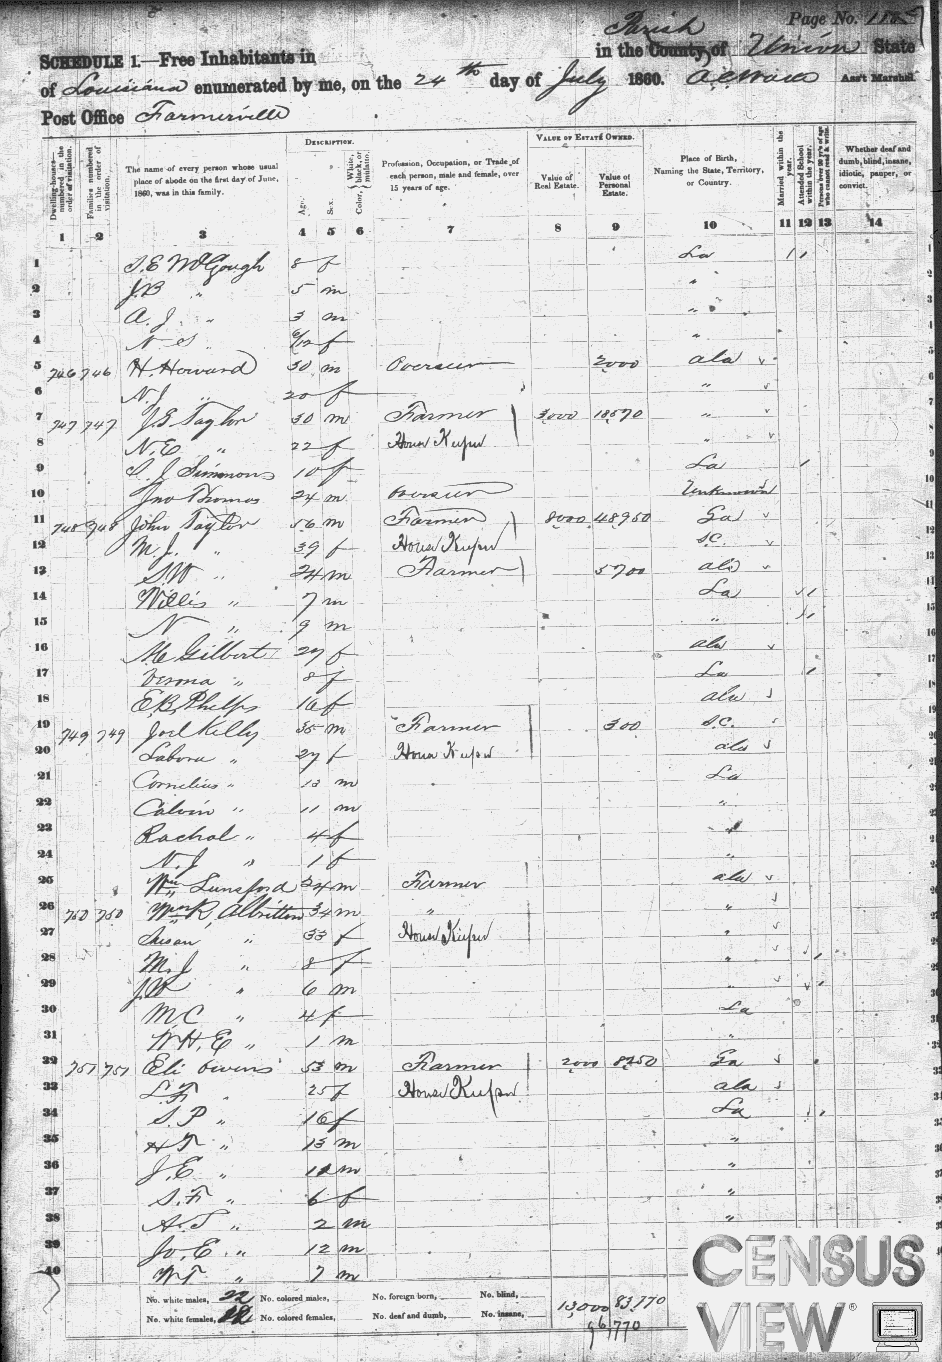 Page No. 118
Parish
SCHEDULE 1.—Free Inhabitants in in the County of Union State
of Louisiana enumerated by me, on the 24th day of July 1860. Ass't Marshal.
Post Office Farmerville
Dwelling-houses numbered in the order of visitation.
Families numbered in the order of visitation.
The name of every person whose usual place of abode on the first day of June, 1860, was in this family.
DESCRIPTION.
Age.
Sex.
Color, White, black, or mulatto.
Profession, Occupation, or Trade of each person, male and female, over 15 years of age.
VALUE OF ESTATE OWNED.
Value of Real Estate.
Value of Personal Estate.
Place of Birth, Naming the State, Territory, or Country.
Married within the year.
Attended School within the year.
Persons over 20 y'rs of age who cannot read & write.
Whether deaf and dumb, blind, insane, idiotic, pauper, or convict.
1 2 3 4 5 6 7 8 9 10 11 12 13 14
1 S.E McGough 8 f La
2 J.B " 5 m "
3 A. J. " 3 m "
4 N S " f "
5 746 746 H. Howard 30 m Overseer 2000 ala
6 N.J " 20 f "
7 747 747 J.E Taylor 30 m Farmer 3000 "
8 N.E " 22 f House Keeper "
9 J Simmons 10 f La
10 Jno Thomas 24 m Overseer Unknown
11 748 748 John Taylor 56 m Farmer 8000 48950 Ga
12 M.J. " 39 f House Keeper S.C.
13 S.W " 24 m Farmer 5700 ala
14 Willis " 7 m La
15 N " 9 m "
16 Gilbert 27 f ala
17 Verona " 8 f La
18 E.B. Phelps 16 f ala
19 749 749 Joel Kelly 35 m Farmer 300 S.C.
20 Labora " 27 f House Keeper ala
21 Cornelius " 13 m La
22 Calvin " 11 m "
23 Rachal " 4 f "
24 N.J " 1 f "
25 Wm Lunsford 24 m Farmer ala
26 750 750 Wm R, Albritton 34 m " "
27 Susan " 33 f House Keeper "
28 M.J " 8 f "
29 J.W " 6 m "
30 M C " 4 f La
31 W.H.E " 1 m "
32 751 751 Eli Owens 53 m Farmer 2000 8250 Ga
33 L.F " 25 f House Keeper ala
34 S.P " 16 f La
35 H T " 13 m "
36 J.E " 11 m "
37 S.F " 6 f "
38 A.T " 2 m "
39 Jo. E. " 12 m
40 W T " 7 m
No. white males, 22 No. colored males, No. foreign born, No. blind, 13,000 83,770
No. white females, 18 No. colored females, No. deaf and dumb, No. insane, 96,770
CENSUS
VIEW®